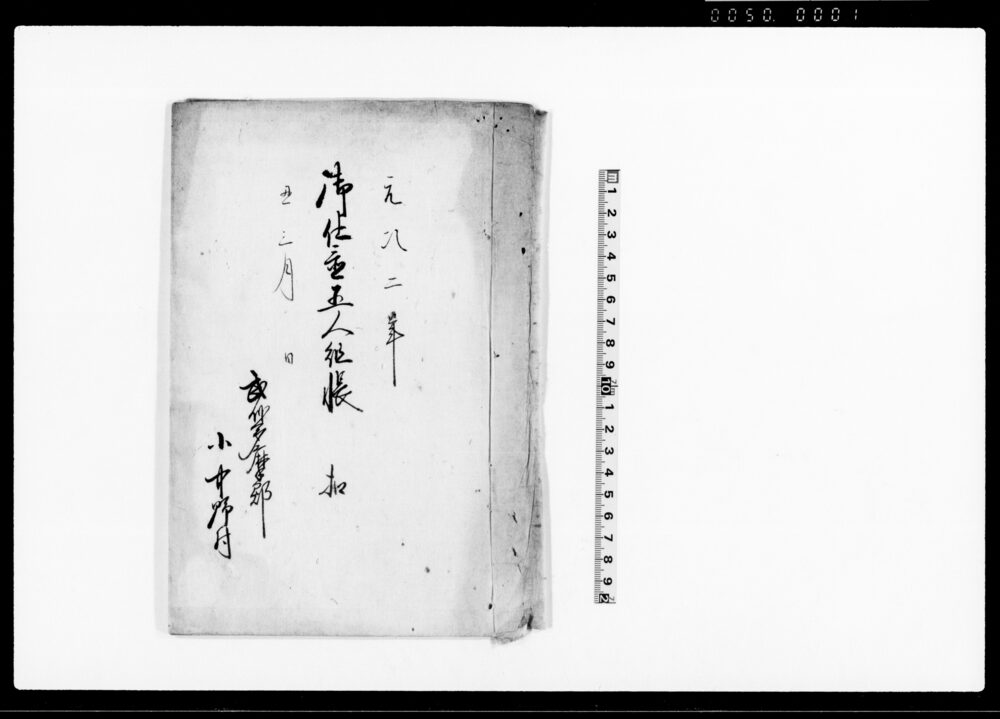 0050. 0001
元治二年
御仕置五人組帳 扣
丑三月 日
武州多摩郡
小中野村
m 1 2 3 4 5 6 7 8 9 10 1 2 3 4 5 6 7 8 9 2